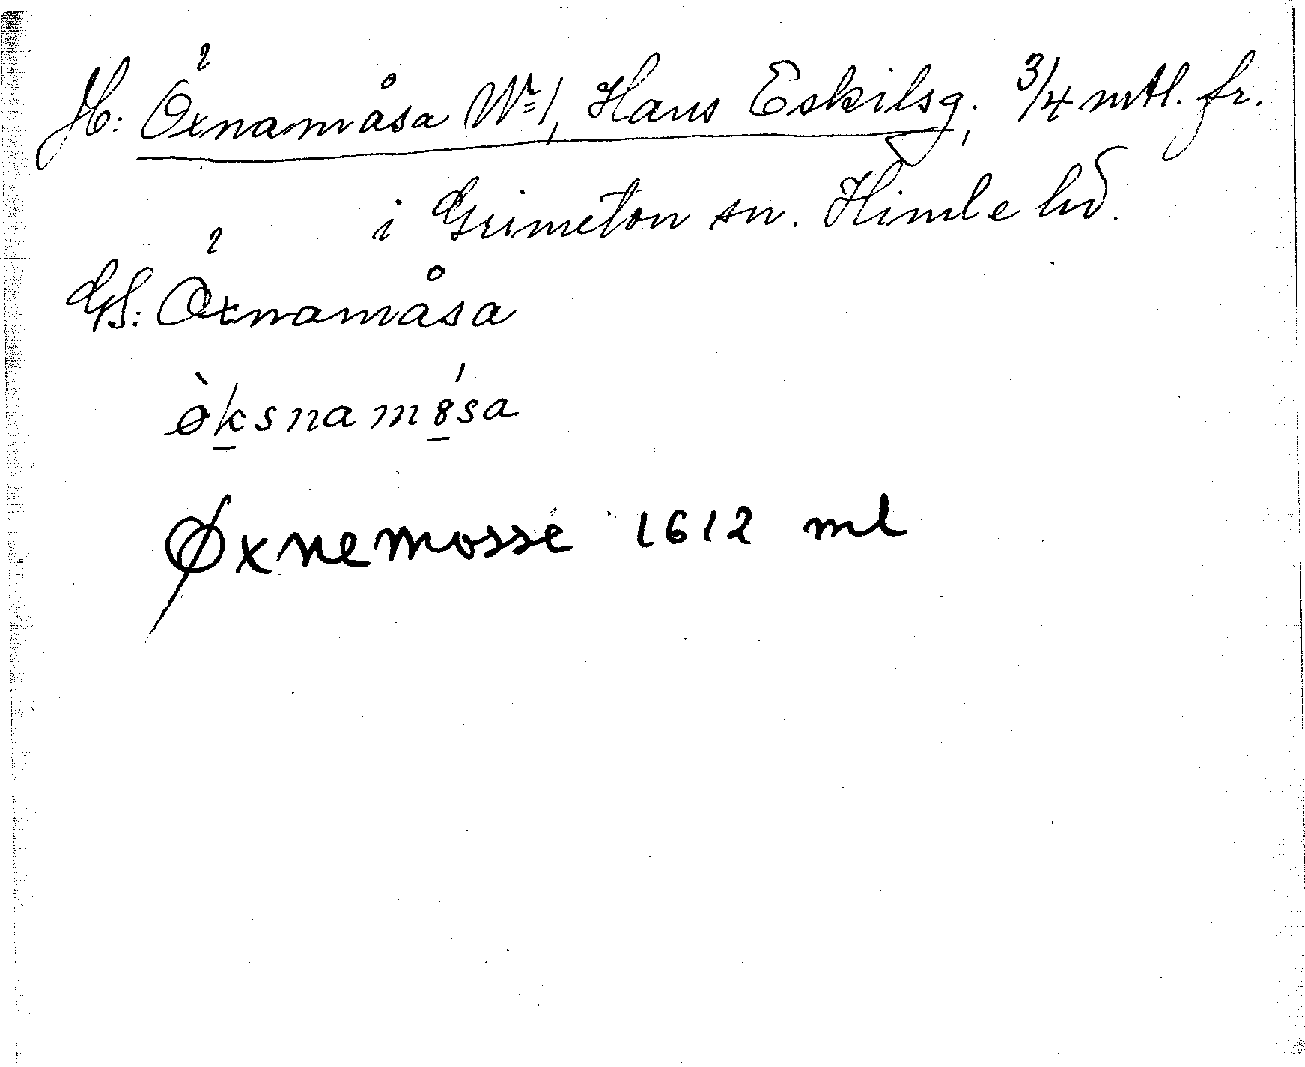 H: Öxnamåsa No 1, Hans Eskilsg. 3/4 mtl. fr.
i Grimeton sn. Himle hd.
GS: Öxnamåsa
ò̀ksnamꞩ́sa
Øxnemosse 1612 ml